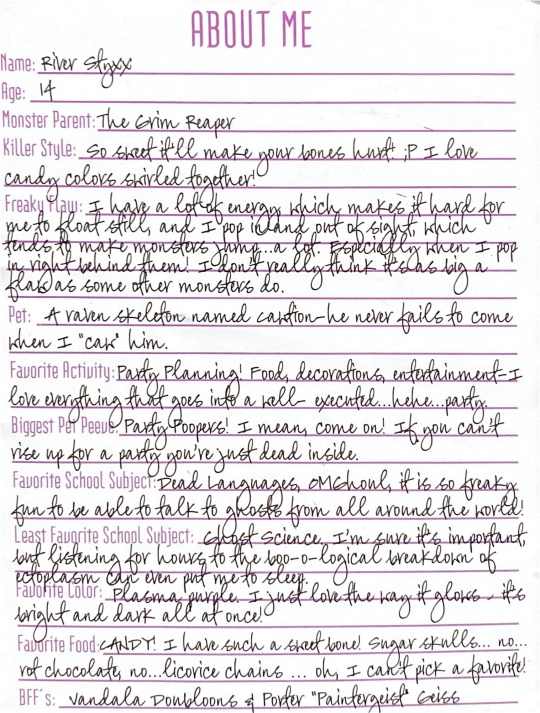 ABOUT ME
Name: River Styxx
Age: 14
Monster Parent: The Grim Reaper
Killer Style: So sweet it'll make your bones hurt! ;P I love
candy colors swirled together!
Freaky Flaw: I have a lot of energy, which makes it hard for
me to float still, and I pop in and out of sight, which
tends to make monsters jump...a lot. Especially when I pop
in right behind them! I don't really think it's as big a
flaw as some other monsters do.
Pet: A raven skeleton named cawtion-he never fails to come
when I "caw" him.
Favorite Activity: Party Planning! Food, decorations, entertainment-I
love everything that goes into a well- executed...hehe...party.
Biggest Pet Peeve: Party Poopers! I mean, come on! If you can't
rise up for a party you're just dead inside.
Favorite School Subject: Dead Languages, OMGhoul, it is so freaky
fun to be able to talk to ghosts from all around the world!
Least Favorite School Subject: Ghost Science. I'm sure it's important,
but listening for hours to the boo-o-logical breakdown of
ectoplasm can even put me to sleep.
Favorite Color: Plasma purple. I just love the way it glows - it's
bright and dark all at once!
Favorite Food: CANDY! I have such a sweet bone! Sugar skulls... no...
rot chocolate, no...licorice chains ... oh, I can't pick a favorite!
BFF's: Vandala Doubloons & Porter "Paintergeist" Geiss